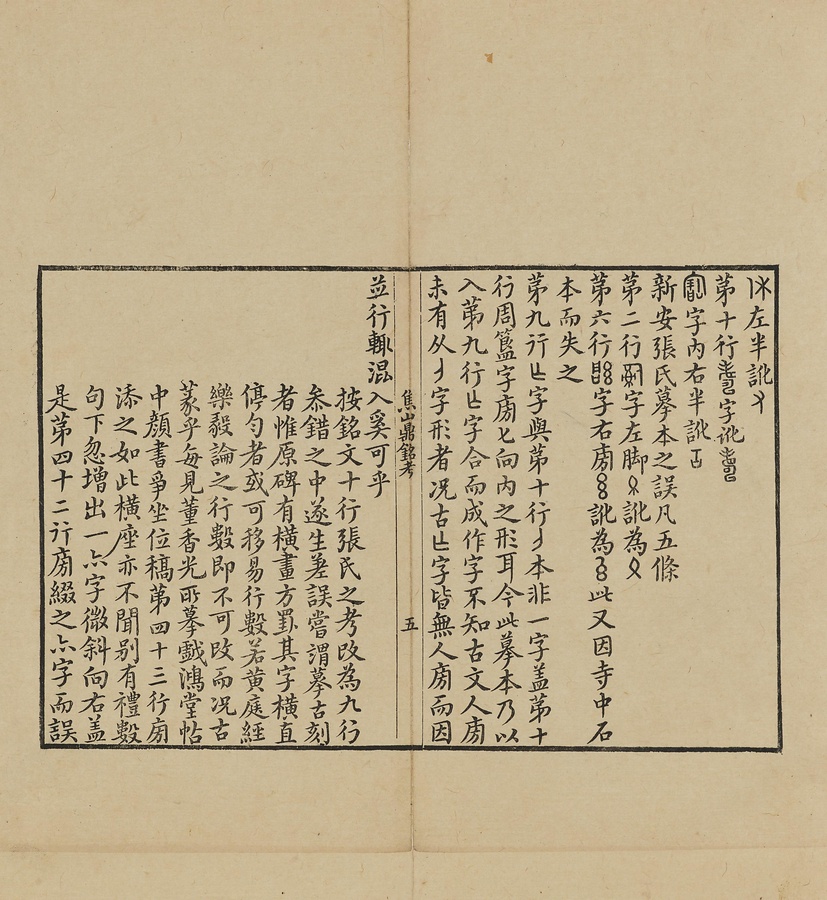 左半訛
第十行字訛
字內右半訛
新安張氏摹本之誤凡五條
第二行字左脚訛為
第六行字右㫄訛為此又因寺中石
本而失之
第九行字與第十行本非一字盖第十
行周簋字㫄匕向內之形耳今此摹本乃以
入第九行字合而成作字不知古文人㫄
未有从字形者况古字皆無人㫄而因
焦山鼎銘考
五
並行輒混入奚可乎
按銘文十行張氏之考改為九行
叅錯之中遂生差誤嘗謂摹古刻
者惟原碑有橫畫方罫其字橫直
停勻者或可移易行數若黃庭經
樂毅論之行數即不可改而况古
篆乎每見董香光所摹戲鴻堂帖
中顏書爭坐位稿第四十三行㫄
添之如此橫座亦不聞别有禮數
句下忽增出一亦字微斜向右盖
是第四十二行㫄綴之亦字而誤